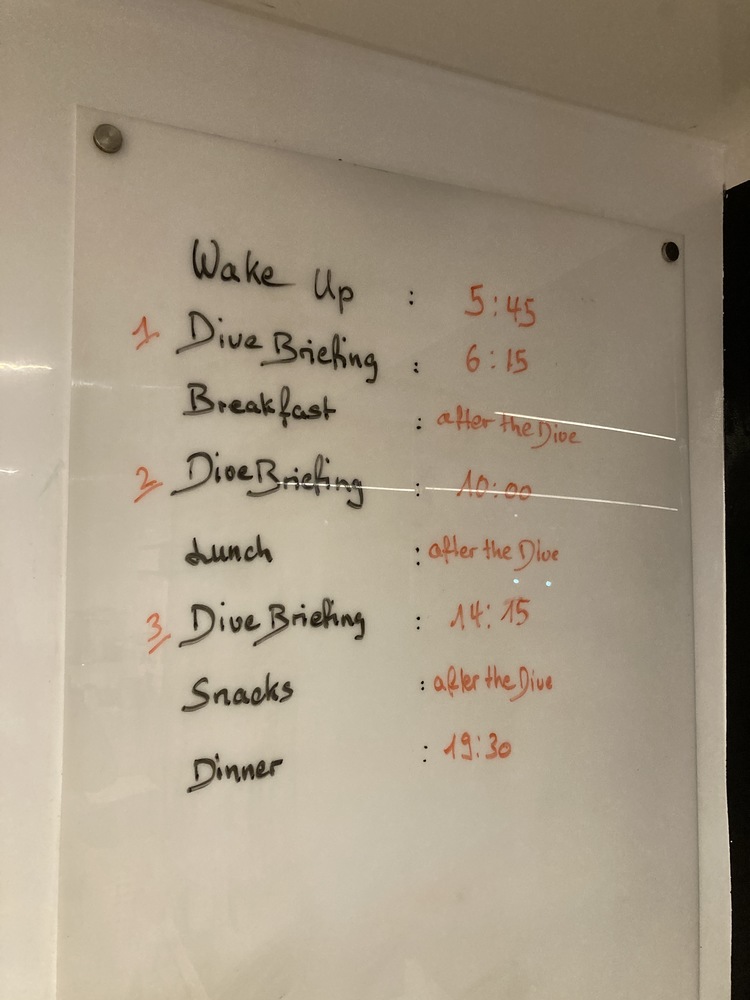 Wake Up : 5:45
1 Dive Briefing : 6:15
Breakfast : after the Dive
2 Dive Briefing : 10:00
Lunch : after the Dive
3 Dive Briefing : 14:15
Snacks : after the Dive
Dinner : 19:30